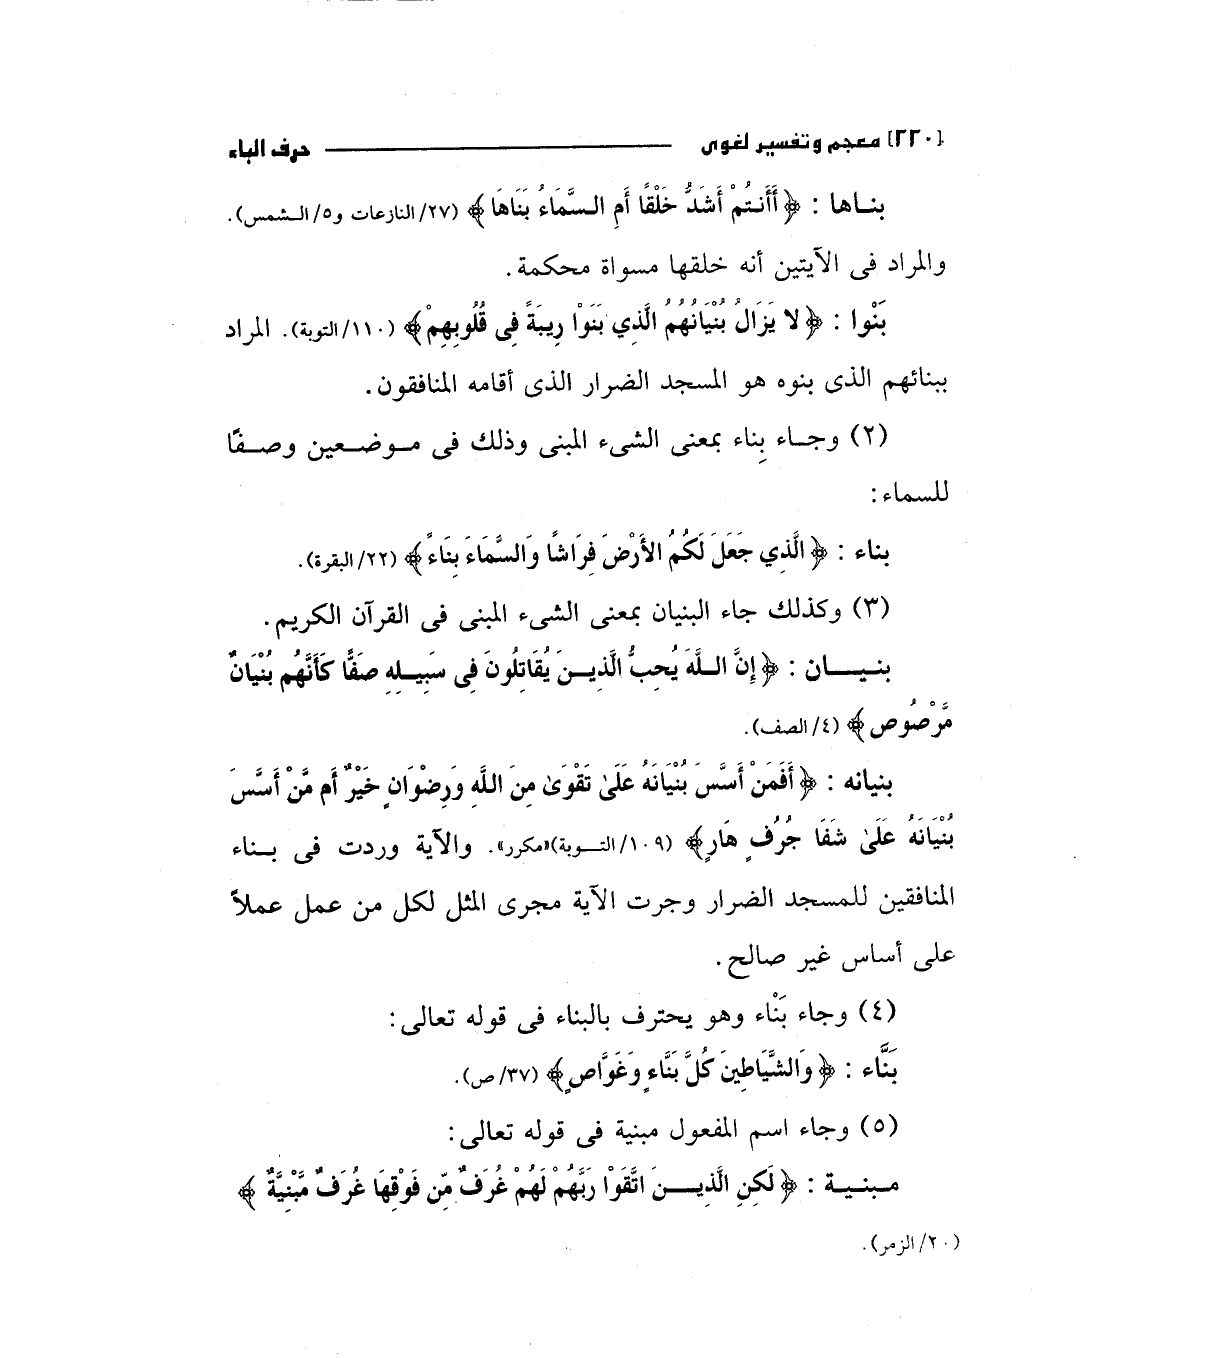 [٢٢٠] معجم وتفسير لغوى حرف الباء
بنـاها : ﴿أَأَنتُمْ أَشَدُّ خَلْقًا أَمِ السَّمَاءُ بَنَاهَا﴾ (٢٧/النازعات و٥/الشمس).
والمراد فى الآيتين أنه خلقها مسواة محكمة.
بَنْوا : ﴿لا يَزَالُ بُنْيَانُهُمُ الَّذِي بَنَوْا رِيبَةً فِى قُلُوبِهِمْ﴾ (١١٠/التوبة). المراد
ببنائهم الذى بنوه هو المسجد الضرار الذى أقامه المنافقون.
(٢) وجاء بِناء بمعنى الشىء المبنى وذلك فى موضعين وصفًا
للسماء:
بناء : ﴿الَّذِي جَعَلَ لَكُمُ الأَرْضَ فِرَاشًا وَالسَّمَاءَ بِنَاءً﴾ (٢٢/البقرة).
(٣) وكذلك جاء البنيان بمعنى الشىء المبنى فى القرآن الكريم.
بنيـان : ﴿إِنَّ اللَّهَ يُحِبُّ الَّذِينَ يُقَاتِلُونَ فِى سَبِيلِهِ صَفًّا كَأَنَّهُم بُنْيَانٌ
مَّرْصُوصٌ﴾ (٤/الصف).
بنيانه : ﴿أَفَمَنْ أَسَّسَ بُنْيَانَهُ عَلَىٰ تَقْوَىٰ مِنَ اللَّهِ وَرِضْوَانٍ خَيْرٌ أَم مَّنْ أَسَّسَ
بُنْيَانَهُ عَلَىٰ شَفَا جُرُفٍ هَارٍ﴾ (١٠٩/التوبة)«مكرر». والآية وردت فى بناء
المنافقين للمسجد الضرار وجرت الآية مجرى المثل لكل من عمل عملاً
على أساس غير صالح.
(٤) وجاء بَنْاء وهو يحترف بالبناء فى قوله تعالى:
بَنَّاء : ﴿وَالشَّيَاطِينَ كُلَّ بَنَّاءٍ وَغَوَّاصٍ﴾ (٣٧/ص).
(٥) وجاء اسم المفعول مبنية فى قوله تعالى:
مبنية : ﴿لَكِنِ الَّذِينَ اتَّقَوْا رَبَّهُمْ لَهُمْ غُرَفٌ مِّن فَوْقِهَا غُرَفٌ مَّبْنِيَّةٌ﴾
(٢٠/الزمر).